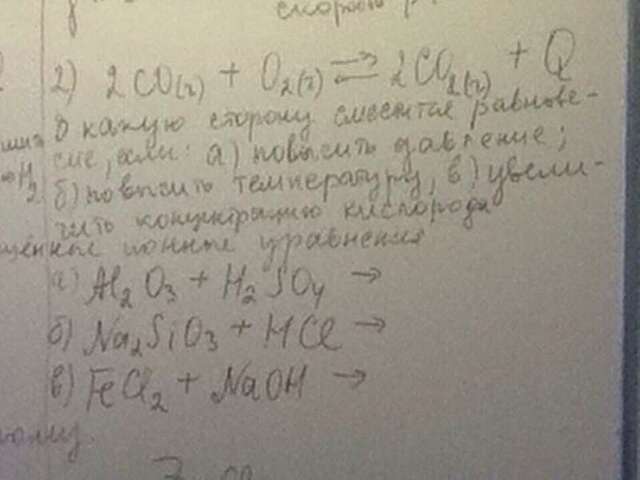 скорость р
2) 2CO(г) + O₂(г) ⇄ 2CO₂(г) + Q
В какую сторону сместится равнове-
сие, если: а) повысить давление;
б) повысить температуру, в) увели-
чить концентрацию кислорода
ионные уравнения
а) Al₂O₃ + H₂SO₄ →
б) Na₂SiO₃ + HCl →
в) FeCl₂ + NaOH →